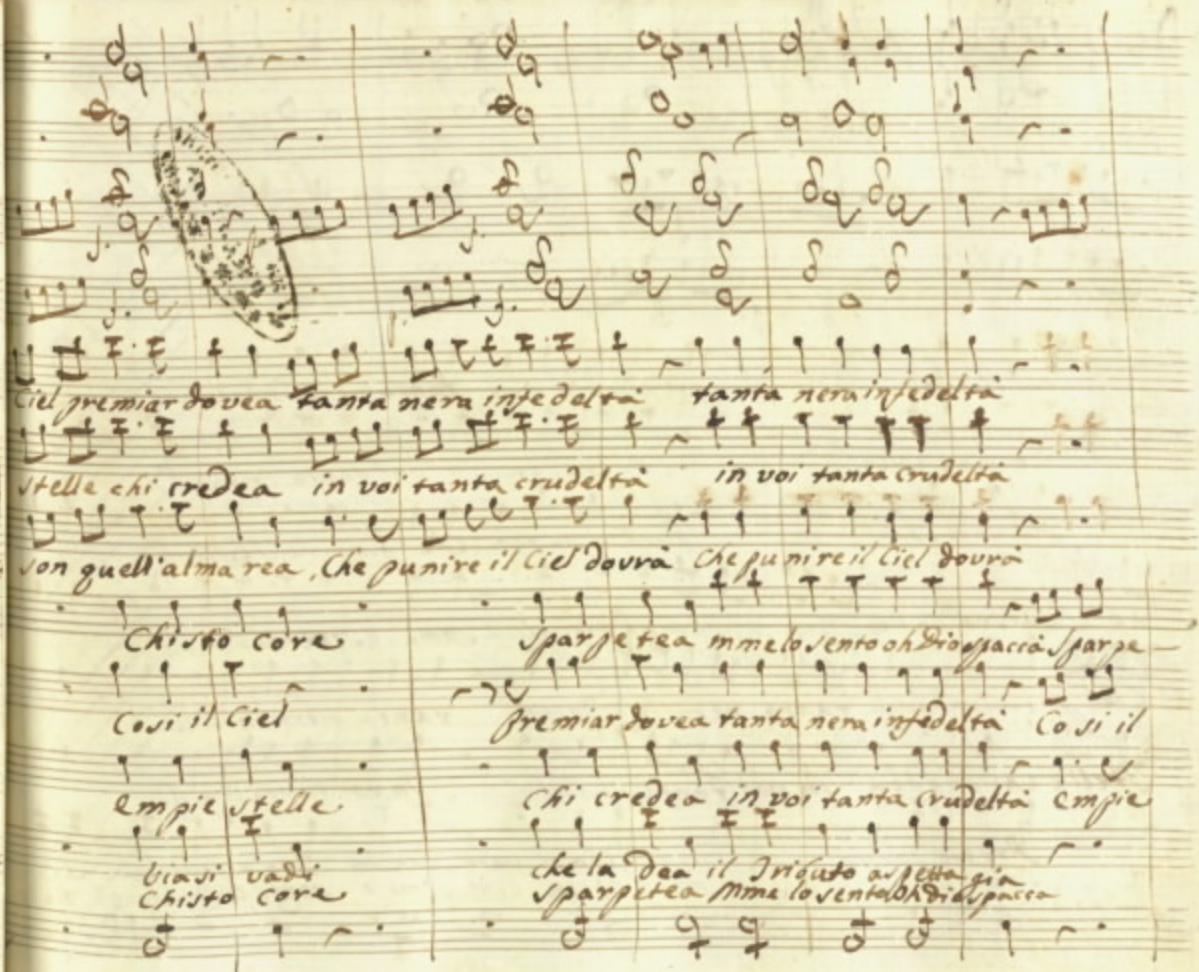 Ciel premiar dovea tanta nera infedeltà tanta nera infedeltà
stelle chi credea in voi tanta crudeltà in voi tanta crudeltà
son quell'alma rea, Che punire il Ciel dovrà Che punire il Ciel dovrà
Chisto core sparpetea mme lo sento oh Dio spaccà sparpe
Cosi il Ciel premiar dovea tanta nera infedeltà Cosi il
empie stelle Chi credea in voi tanta crudeltà empie
vadi che la Dea il Tributo aspetta gia
Chisto core sparpetea Mme lo sento Oh dio spacca